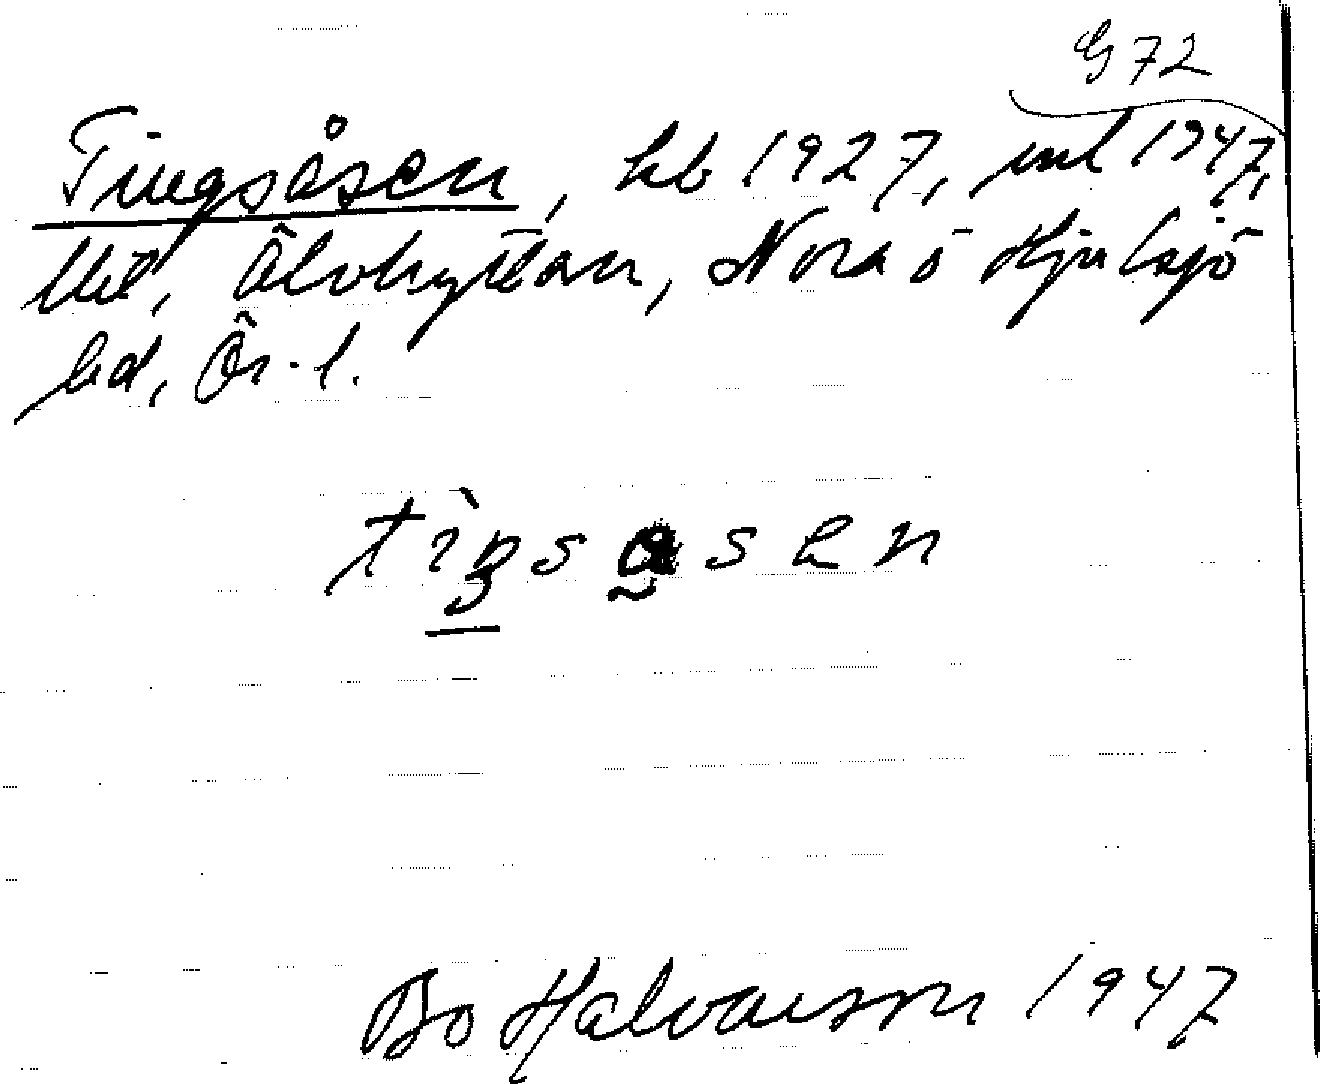 G 72
Tingsåsen, hb 1927, uml 1947,
Älvhyttan, Nora o Hjulsjö
bd, Ör. l.
tìŋsåsen
Bo Halvarson 1947